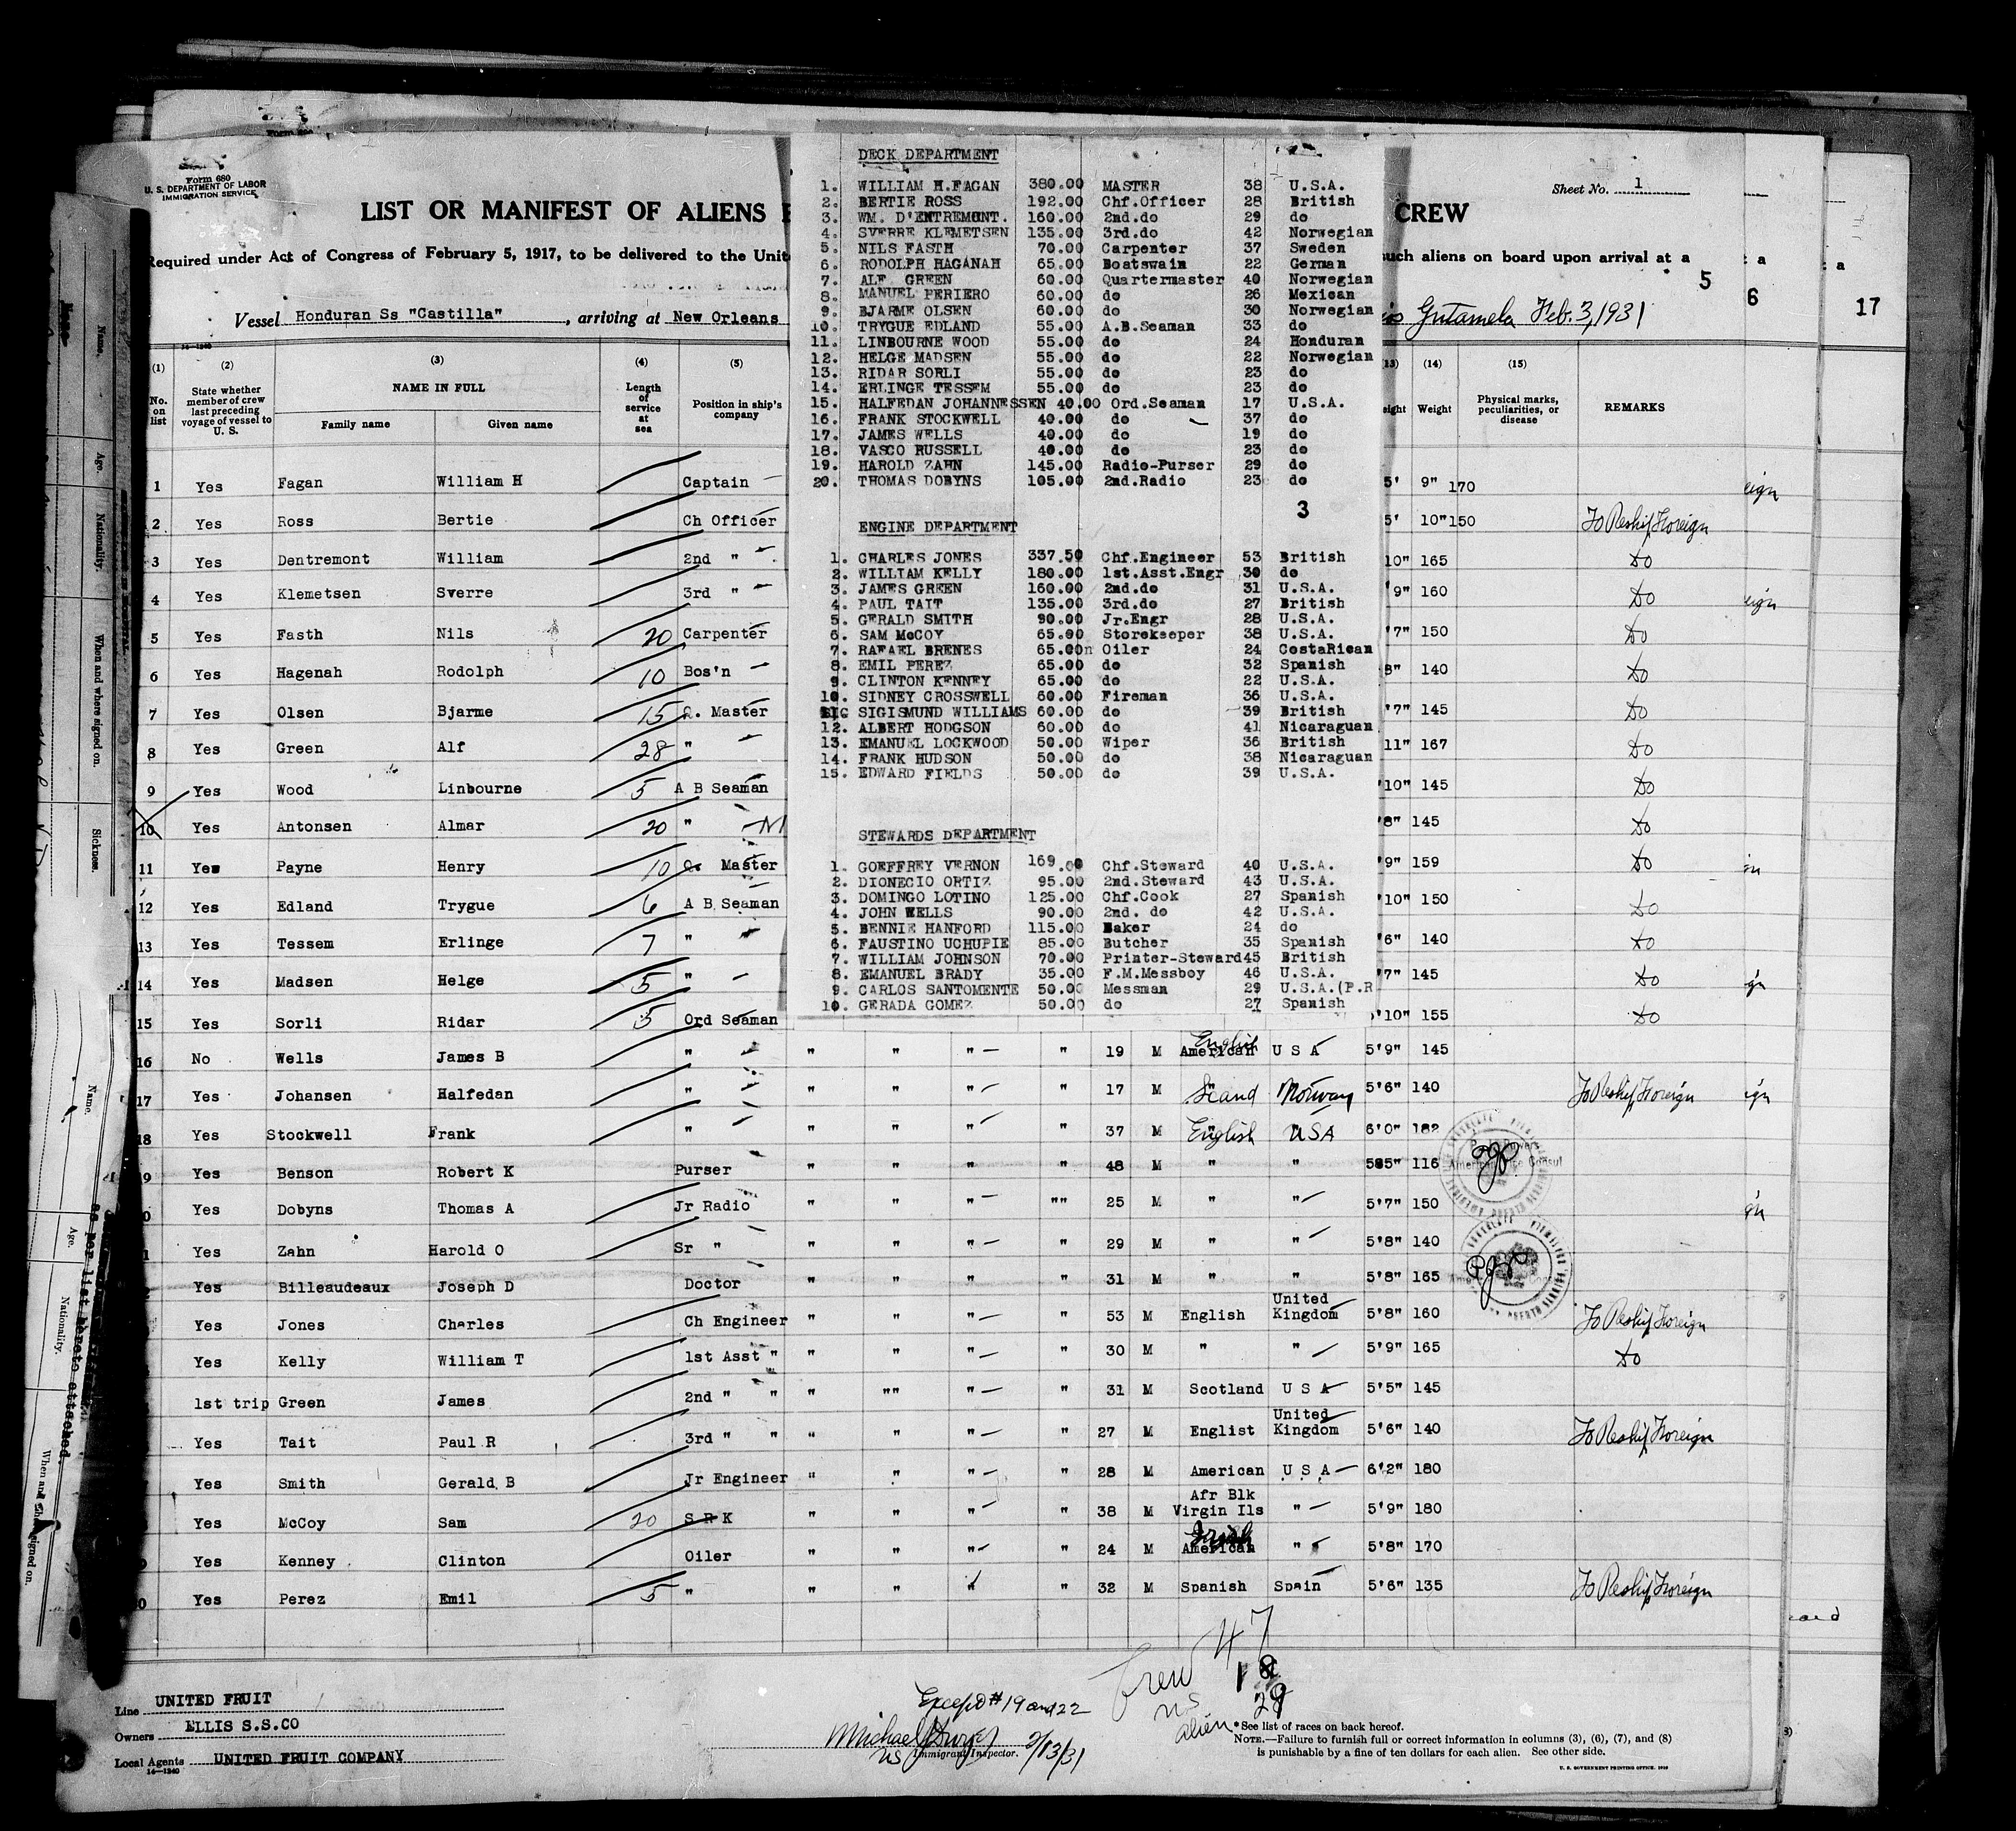 Form 680
U. S. DEPARTMENT OF LABOR
IMMIGRATION SERVICE
Sheet No. 1
LIST OR MANIFEST OF ALIENS CREW
Required under Act of Congress of February 5, 1917, to be delivered to the such aliens on board upon arrival at a
5
6
17
Vessel Honduran Ss "Castilla", arriving at New Orleans Gutamela Feb. 3, 1931
DECK DEPARTMENT
1. WILLIAM H.FAGAN 380.00 MASTER 38 U.S.A.
2. BERTIE ROSS 192.00 Chf.Officer 28 British
3. WM. D'ENTREMONT. 160.00 2nd.do 29 do
4. SVERRE KLEMETSEN 135.00 3rd.do 42 Norwegian
5. NILS FASTH 70.00 Carpenter 37 Sweden
6. RODOLPH HAGANAH 65.00 Boatswain 22 German
7. ALF GREEN 60.00 Quartermaster 40 Norwegian
8. MANUEL PERIERO 60.00 do 26 Mexican
9. BJARME OLSEN 60.00 do 30 Norwegian
10. TRYGUE EDLAND 55.00 A.B.Seaman 33 do
11. LINBOURNE WOOD 55.00 do 24 Honduran
12. HELGE MADSEN 55.00 do 22 Norwegian
13. RIDAR SORLI 55.00 do 23 do
14. ERLINGE TESSEM 55.00 do 23 do
15. HALFEDAN JOHANNESSEN 40.00 Ord.Seaman 17 U.S.A.
16. FRANK STOCKWELL 40.00 do 37 do
17. JAMES WELLS 40.00 do 19 do
18. VASCO RUSSELL 40.00 do 23 do
19. HAROLD ZAHN 145.00 Radio-Purser 29 do
20. THOMAS DOBYNS 105.00 2nd.Radio 23 do
3
ENGINE DEPARTMENT
1. CHARLES JONES 337.50 Chf.Engineer 53 British
2. WILLIAM KELLY 180.00 1st.Asst.Engr 30 do
3. JAMES GREEN 160.00 2nd.do 31 U.S.A.
4. PAUL TAIT 135.00 3rd.do 27 British
5. GERALD SMITH 90.00 Jr.Engr 28 U.S.A.
6. SAM McCOY 65.00 Storekeeper 38 U.S.A.
7. RAFAEL BRENES 65.00n Oiler 24 CostaRican
8. EMIL PEREZ 65.00 do 32 Spanish
9. CLINTON KENNEY 65.00 do 22 U.S.A.
10. SIDNEY CROSSWELL 60.00 Fireman 36 U.S.A.
SIGISMUND WILLIAMS 60.00 do 39 British
12. ALBERT HODGSON 60.00 do 41 Nicaraguan
13. EMANUEL LOCKWOOD 50.00 Wiper 36 British
14. FRANK HUDSON 50.00 do 38 Nicaraguan
15. EDWARD FIELDS 50.00 do 39 U.S.A.
STEWARDS DEPARTMENT
1. GOEFFREY VERNON 169.00 Chf.Steward 40 U.S.A.
2. DIONECIO ORTIZ 95.00 2nd.Steward 43 U.S.A.
3. DOMINGO LOTINO 125.00 Chf.Cook 27 Spanish
4. JOHN WELLS 90.00 2nd. do 42 U.S.A.
5. BENNIE HANFORD 115.00 Baker 24 do
6. FAUSTINO UCHUPIE 85.00 Butcher 35 Spanish
7. WILLIAM JOHNSON 70.00 Printer-Steward 45 British
8. EMANUEL BRADY 35.00 F.M.Messboy 46 U.S.A.
9. CARLOS SANTOMENTE 50.00 Messman 29 U.S.A.(P.R
10. GERADA GOMEZ 50.00 do 27 Spanish
(1) (2) (3) (4) (5) (13) (14) (15)
No. on list
State whether member of crew last preceding voyage of vessel to U. S.
NAME IN FULL
Family name Given name
Length of service at sea
Position in ship's company
Weight
Physical marks, peculiarities, or disease
REMARKS
1 Yes Fagan William H Captain 5' 9" 170
2 Yes Ross Bertie Ch Officer 5' 10" 150 To Reship Foreign
3 Yes Dentremont William 2nd " 10" 165 Do
4 Yes Klemetsen Sverre 3rd " '9" 160 Do
5 Yes Fasth Nils 20 Carpenter '7" 150 Do
6 Yes Hagenah Rodolph 10 Bos'n 8" 140 Do
7 Yes Olsen Bjarme 15 Q. Master '7" 145 Do
8 Yes Green Alf 28 " 11" 167 Do
9 Yes Wood Linbourne 5 A B Seaman '10" 145 Do
10 Yes Antonsen Almar 20 " '8" 145 Do
11 Yes Payne Henry 10 Q. Master '9" 159 Do
12 Yes Edland Trygue 6 A B Seaman '10" 150 Do
13 Yes Tessem Erlinge 7 " '6" 140 Do
14 Yes Madsen Helge 5 " '7" 145 Do
15 Yes Sorli Ridar 5 Ord Seaman '10" 155 Do
16 No Wells James B " " " " " 19 M American English U S A 5'9" 145
17 Yes Johansen Halfedan " " " " " 17 M Scand Norway 5'6" 140 To Reship Foreign
18 Yes Stockwell Frank " " " " " 37 M English USA 6'0" 182
9 Yes Benson Robert K Purser " " " " 48 M " " 5'5" 116
0 Yes Dobyns Thomas A Jr Radio " " " "" 25 M " 5'7" 150
1 Yes Zahn Harold O Sr " " " " " 29 M " " 5'8" 140
Yes Billeaudeaux Joseph D Doctor " " " " 31 M " " 5'8" 165
Yes Jones Charles Ch Engineer " " " " 53 M English United Kingdom 5'8" 160 To Reship Foreign
Yes Kelly William T 1st Asst " " " " " 30 M " " 5'9" 165 Do
1st trip Green James 2nd " " " "" " " 31 M Scotland U S A 5'5" 145
Yes Tait Paul R 3rd " " " " " " 27 M Englist United Kingdom 5'6" 140 To Reship Foreign
Yes Smith Gerald B Jr Engineer " " " " 28 M American U S A 6'2" 180
Yes McCoy Sam 20 S R K " " " " 38 M Afr Blk Virgin Ils " 5'9" 180
Yes Kenney Clinton Oiler " " " " 24 M American Irish " 5'8" 170
0 Yes Perez Emil 5 " " " " " 32 M Spanish Spain 5'6" 135 To Reship Foreign
American Vice Consul
Crew 47
US 18
alien 29
Line UNITED FRUIT
Owners ELLIS S.S.CO
Local Agents UNITED FRUIT COMPANY
14—1240
Except # 19 and 22
Michael
US Immigrant Inspector. 2/13/31
*See list of races on back hereof.
NOTE.—Failure to furnish full or correct information in columns (3), (6), (7), and (8)
is punishable by a fine of ten dollars for each alien. See other side.
U. S. GOVERNMENT PRINTING OFFICE
Name.
Age.
Nationality.
When and where signed on.
Sickness.
Name.
Age.
Nationality.
as per list hereto attached.